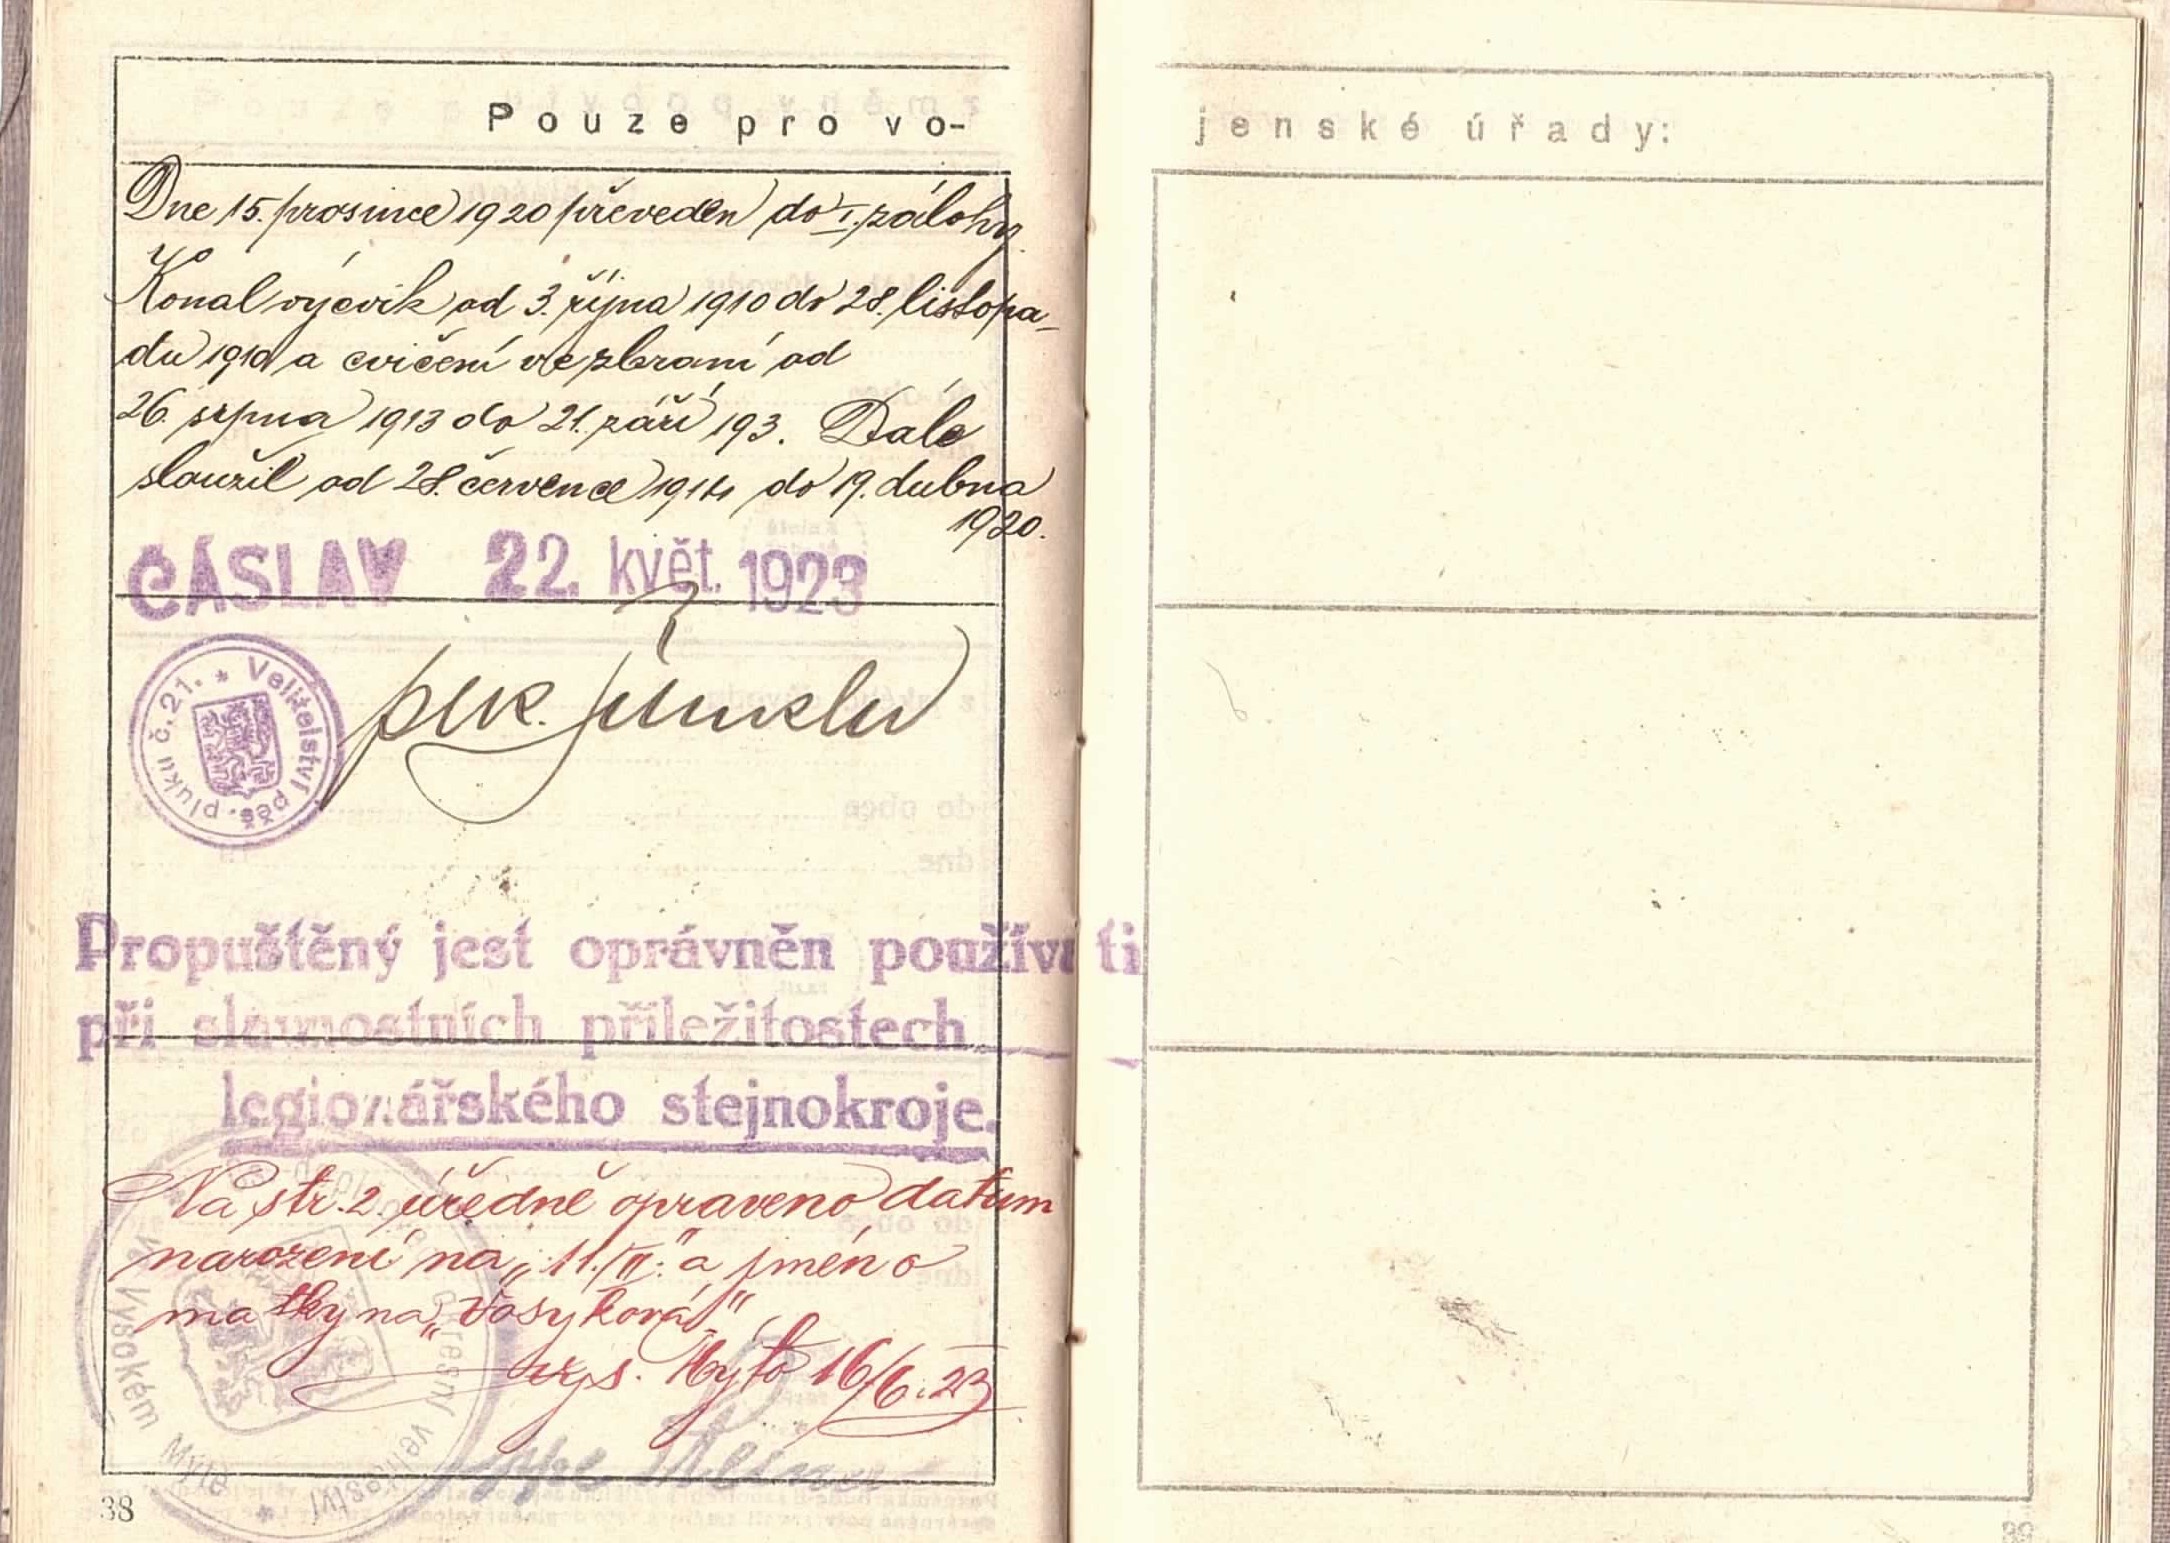 Pouze pro vo-
jenské úřady:
Dne 15. prosince 1920 převeden do I. zálohy.
Konal výcvik od 3. října 1910 do 28. listopa-
du 1910 a cvičení ve zbrani od
26. srpna 1913 do 21. září 193. Dále
sloužil od 28. července 1914 do 19. dubna
1920.
ČÁSLAV 22. květ. 1923
Velitelství pěš. pluku č. 21. *
plk.
Propuštěný jest oprávněn používati
při slavnostních příležitostech
legionářského stejnokroje.
Na str. 2. úředně opraveno datum
narození na „11./II." a jméno
matky na „Vosyková"
vys. Mýto 16/6. 23
velitelství
ve Vysokém Mýtě *
38
39